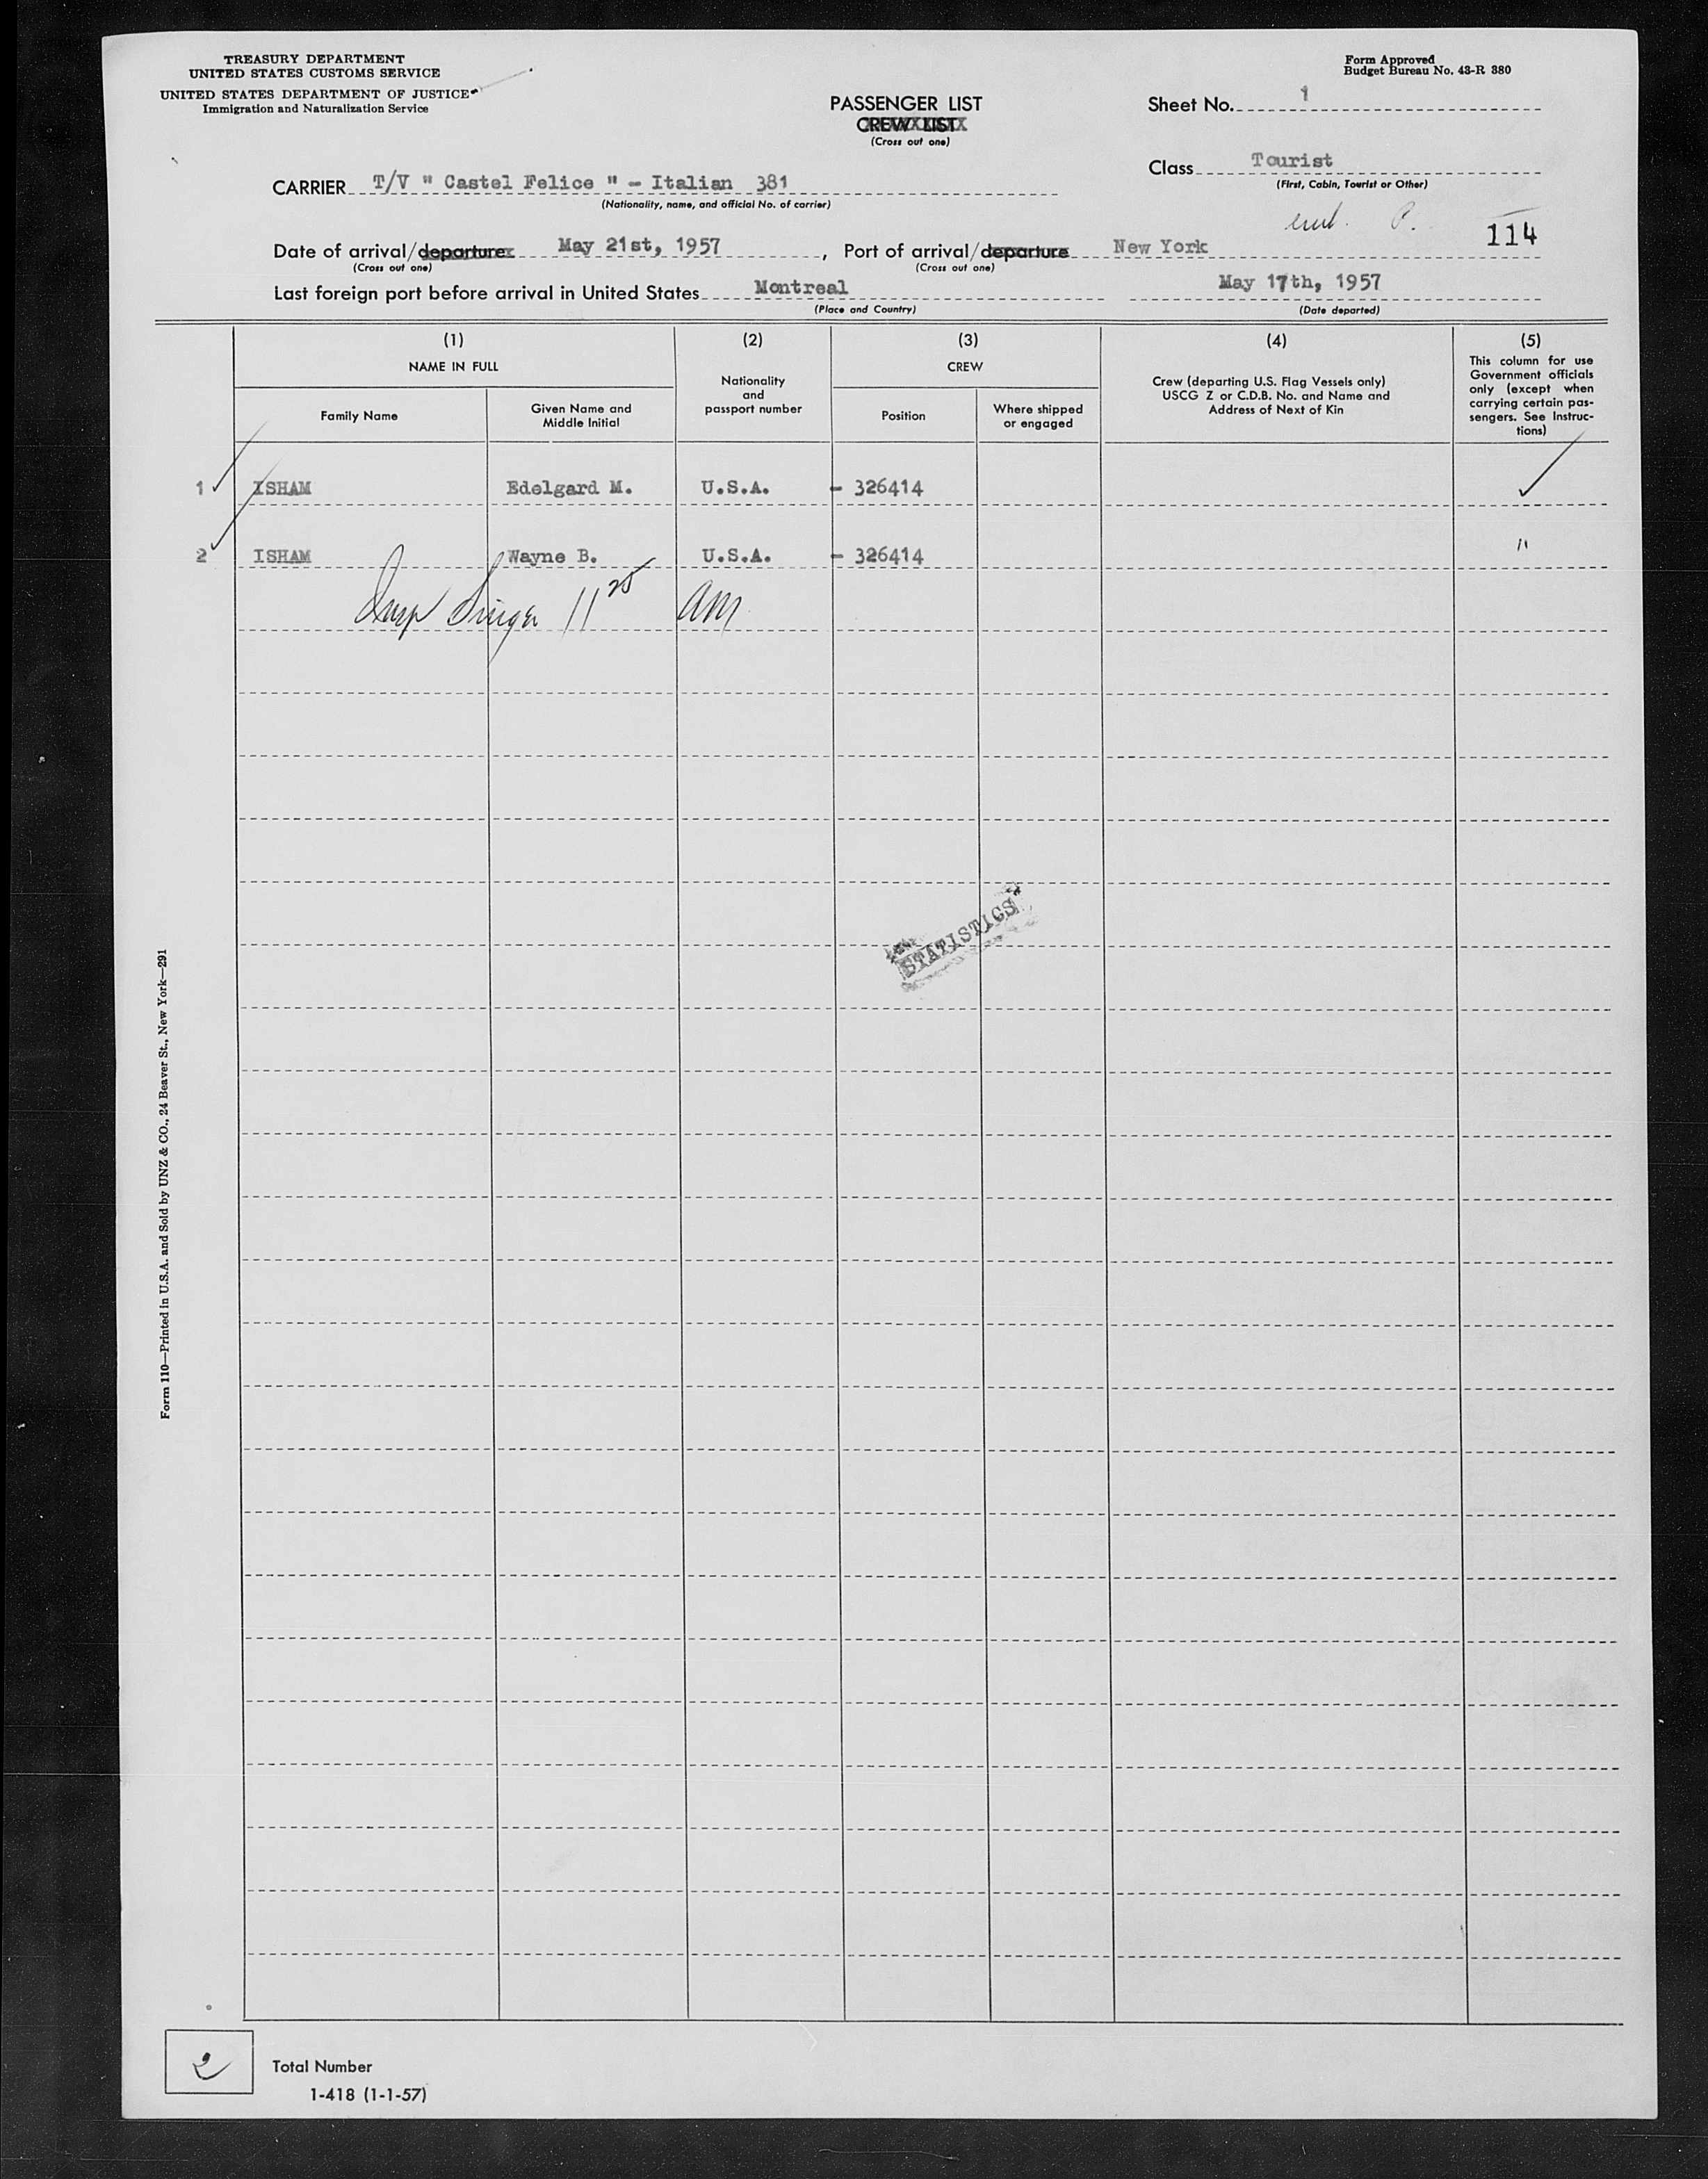 TREASURY DEPARTMENT
UNITED STATES CUSTOMS SERVICE
UNITED STATES DEPARTMENT OF JUSTICE
Immigration and Naturalization Service
Form Approved
Budget Bureau No. 43-R 380
PASSENGER LIST
CREW LIST
(Cross out one)
Sheet No. 1
Class Tourist
(First, Cabin, Tourist or Other)
CARRIER T/V " Castel Felice " - Italian 381
(Nationality, name, and official No. of carrier)
114
Date of arrival/departure May 21st, 1957, Port of arrival/departure New York
(Cross out one) (Cross out one)
Last foreign port before arrival in United States Montreal May 17th, 1957
(Place and Country) (Date departed)
(1) (2) (3) (4) (5)
NAME IN FULL
Family Name
Given Name and
Middle Initial
Nationality
and
passport number
CREW
Position
Where shipped
or engaged
Crew (departing U.S. Flag Vessels only)
USCG Z or C.D.B. No. and Name and
Address of Next of Kin
This column for use
Government officials
only (except when
carrying certain pas-
sengers. See Instruc-
tions)
1 ISHAM Edelgard M. U.S.A. - 326414
2 ISHAM Wayne B. U.S.A. - 326414 "
Insp Singer 11 25 am
STATISTICS
Form 110—Printed in U.S.A. and Sold by UNZ & CO., 24 Beaver St., New York—291
2 Total Number
1-418 (1-1-57)